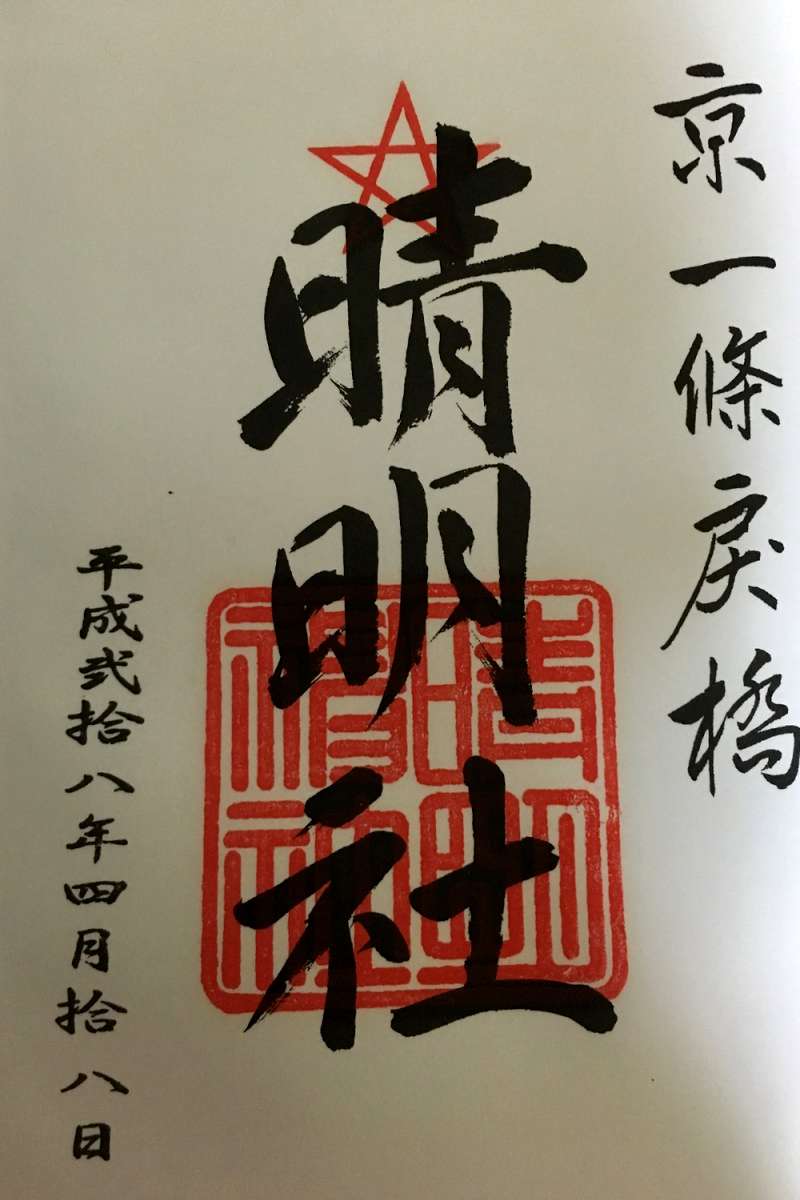 京一條戻橋
晴明社
晴明
神社
平成弐拾八年四月拾八日